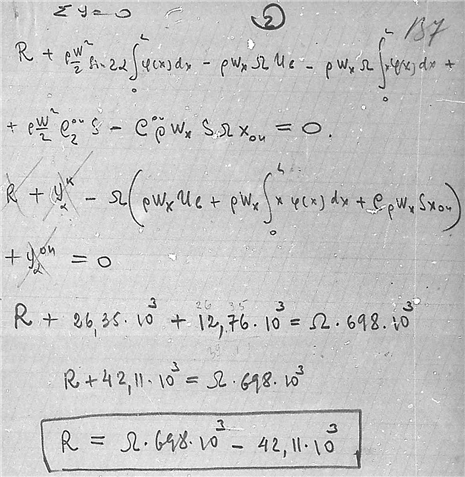 Σ Y = 0
②
137
R + ρ W²/2 sin 2α ∫₀ᴸ φ(x) dx − ρ Wₓ Ω U_в − ρ Wₓ Ω ∫₀ᴸ x φ(x) dx +
+ ρ W²/2 C₂ᵒⁿ S − C_ρᵒⁿ Wₓ S Ω xₒₙ = 0.
R + Y_α^к − Ω (ρ Wₓ U_в + ρ Wₓ ∫₀ᴸ x φ(x) dx + C_ρ Wₓ S xₒₙ)
+ Y_αᵒⁿ = 0
R + 26,35·10³ + 12,76·10³ = Ω·698·10³
R + 42,11·10³ = Ω·698·10³
R = Ω·698·10³ − 42,11·10³